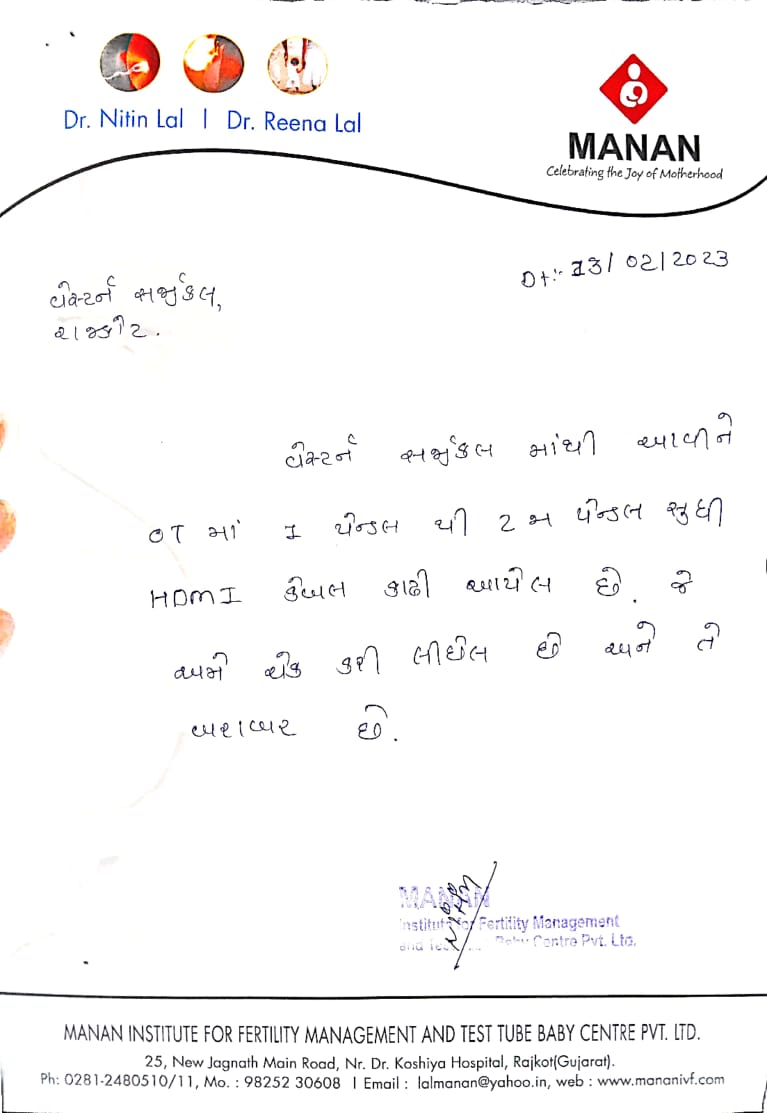 Dr. Nitin Lal | Dr. Reena Lal
MANAN
Celebrating the Joy of Motherhood
Dt:- 13/02/2023
વેસ્ટર્ન સર્જીકલ,
રાજકોટ.
વેસ્ટર્ન સર્જીકલ માંથી આવીને
OT માં 1 પેન્ડલ થી 2 જા પેન્ડલ સુધી
HDMI કેબલ કાઢી આપેલ છે. જે
અમે ચેક કરી લીધેલ છે અને તે
બરાબર છે.
MANAN
Institute for Fertility Management
and Baby Centre Pvt. Ltd.
MANAN INSTITUTE FOR FERTILITY MANAGEMENT AND TEST TUBE BABY CENTRE PVT. LTD.
25, New Jagnath Main Road, Nr. Dr. Koshiya Hospital, Rajkot(Gujarat).
Ph: 0281-2480510/11, Mo. : 98252 30608 | Email : lalmanan@yahoo.in, web : www.mananivf.com